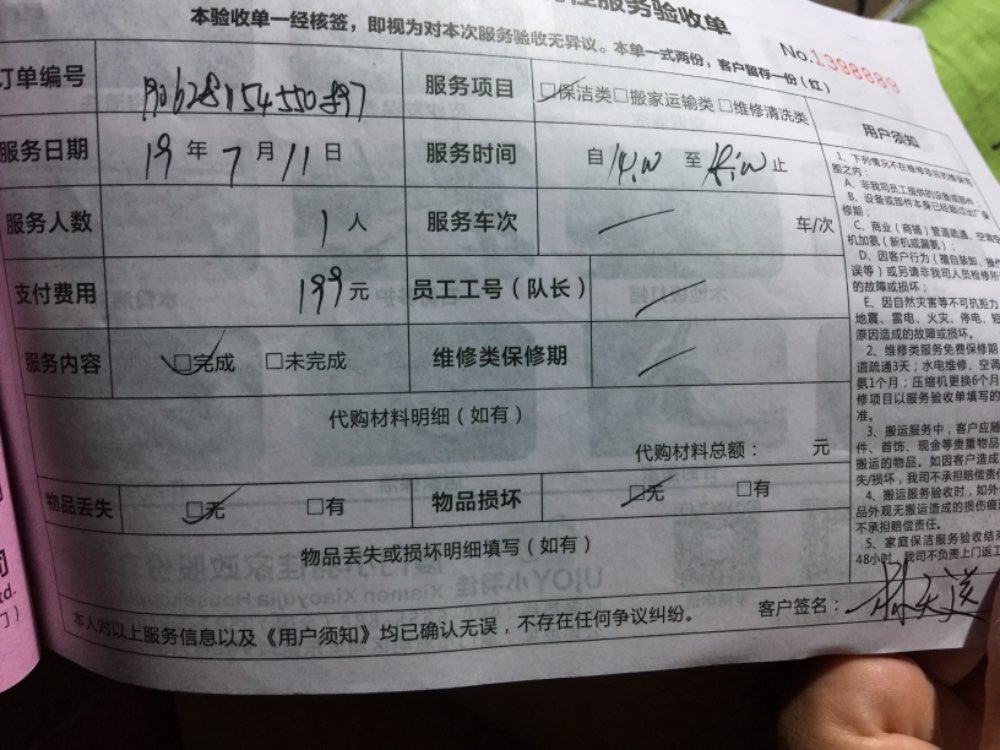 服务验收单
本验收单一经核签，即视为对本次服务验收无异议。本单一式两份，客户留存一份（红）
No.1398889
订单编号
服务项目 □保洁类□搬家运输类□维修清洗类
服务日期 19 年 7 月 11 日 服务时间 自 至 止
服务人数 1 人 服务车次 车/次
支付费用 199元 员工工号（队长）
服务内容 □完成 □未完成 维修类保修期
代购材料明细（如有）
代购材料总额： 元
物品丢失 □无 □有 物品损坏 □无 □有
物品丢失或损坏明细填写（如有）
本人对以上服务信息以及《用户须知》均已确认无误，不存在任何争议纠纷。 客户签名：
用户须知
1、下列情况不在维修项目的保
围之内：
A、非我司员工提供的设备或部件
B、设备或部件本身已经超过出厂保
修期；
C、商业（商铺）管道疏通、空调
机加氨（新机或漏氨）；
D、因客户行为（擅自装卸、操
误等）或另请非我司人员检修所
的故障或损坏；
E、因自然灾害等不可抗拒力
地震、雷电、火灾、停电、
原因造成的故障或损坏。
2、维修类服务免费保修期
道疏通3天；水电维修、空调
氨1个月；压缩机更换6个月
修项目以服务验收单填写的
准。
3、搬运服务中，客户应随
件、首饰、现金等贵重物品
搬运的物品。如因客户造成
失/损坏，我司不承担赔偿责任
4、搬运服务验收时，如外
品外观无搬运造成的损伤痕
不承担赔偿责任。
5、家庭保洁服务验收结束
48小时，我司不负责上门返工